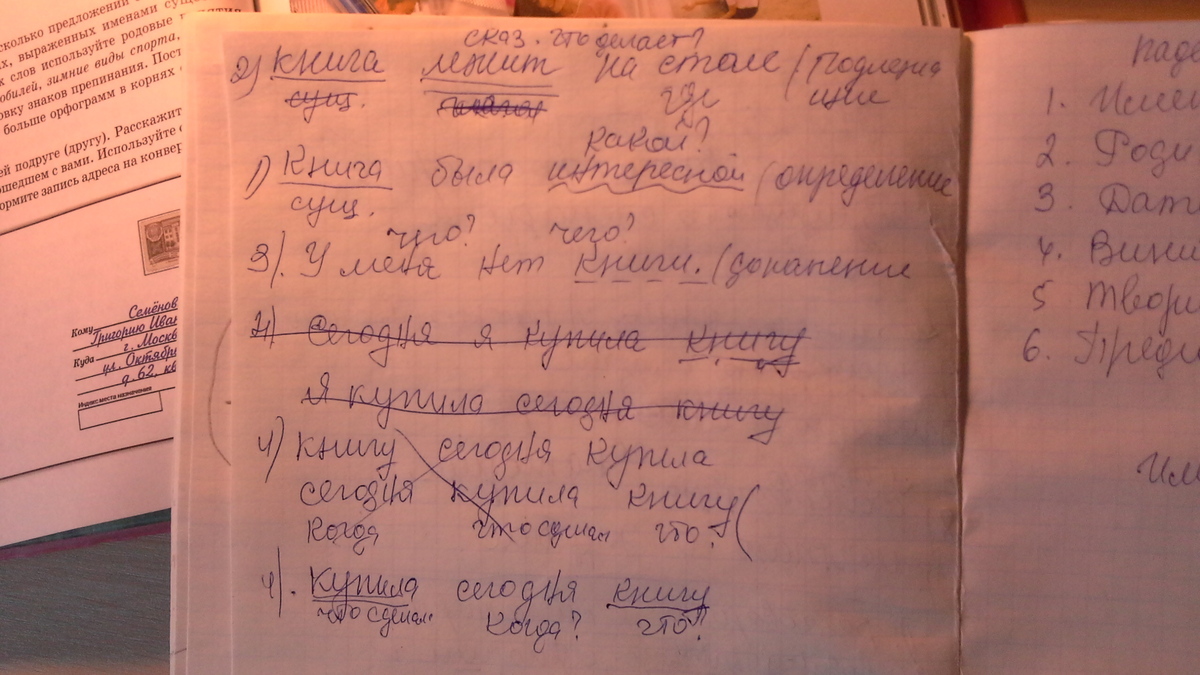 сколько предложений с
х, выраженных именами сущ
х слов используйте родовые понятия
обилей, зимние виды спорта.
овку знаков препинания. Пост
больше орфограмм в корнях с
ей подруге (другу). Расскажит
ошедшем с вами. Используйте
ормите запись адреса на конвер
Кому Семёнов
Григорию Иван
Куда г. Москв
ул. Октябр
д. 62, кв
Индекс места назначения
сказ. что делает?
2) Книга лежит на столе (подлежа
сущ. где щие
Какой?
1) Книга была интересной (определение
сущ.
чего? чего?
3). У меня нет книги. (дополнение
4) Сегодня я купила книгу
Я купила сегодня книгу
4) Книгу сегодня купила
сегодня купила книгу (
когда что сделал что?
4). Купила сегодня книгу
что сделал когда? что?
пад
1. Имен
2. Роди
3. Дат
4. Вини
5 Твори
6. Предл
Им